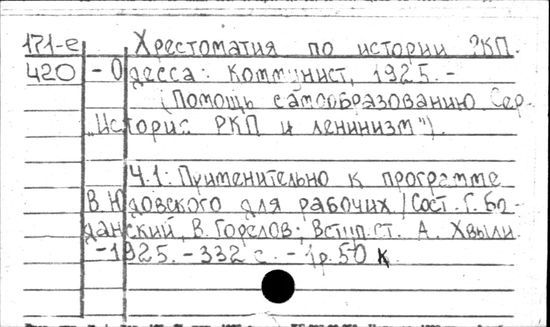 171-е Хрестоматия по истории РКП.
420 - Одесса: Коммунист, 1925. -
(Помощь самообразованию. Сер.
"История РКП и ленинизм").
Ч.1: Применительно к программе
В. Юдовского для рабочих / Сост. Г. Бо-
данский, В. Горелов; Вступ. ст. А. Хвыли.
- 1925. - 332 с. - 1р. 50 к